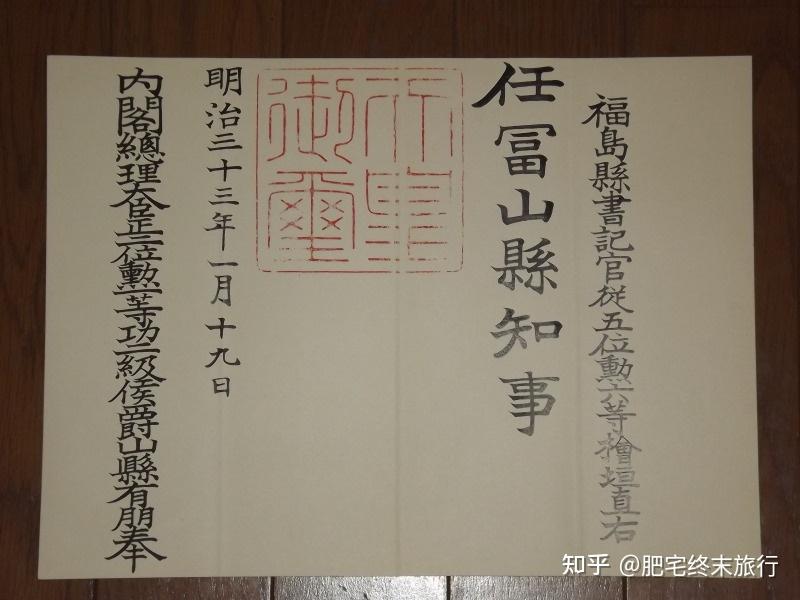 福島縣書記官従五位勳六等檜垣直右
任冨山縣知事
天皇
御璽
明治三十三年一月十九日
内閣總理大臣正二位勳一等功二級侯爵山縣有朋奉
知乎 @肥宅终末旅行